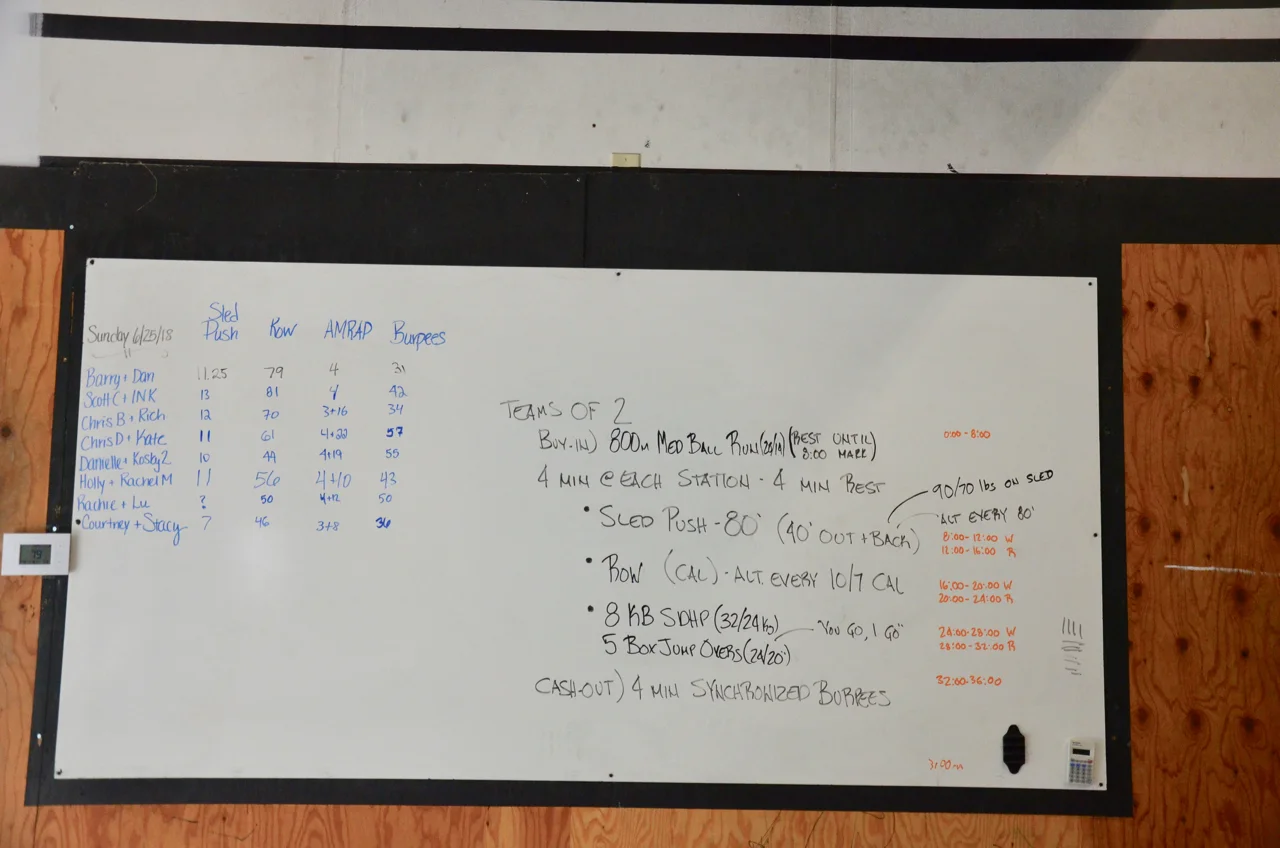 Sunday 6/25/18 Sled Push Row AMRAP Burpees
Barry + Dan 11.25 79 4 31
Scott C + INK 13 81 4 42
Chris B + Rich 12 70 3+16 34
Chris D + Kate 11 61 4+22 57
Danielle + Kosby 2 10 44 4+19 55
Holly + Rachel M 11 56 4+10 43
Rachie + Lu ? 50 4+12 50
Courtney + Stacy 7 46 3+8 36
TEAMS OF 2
BUY-IN) 800m MED BALL RUN (20/14) (REST UNTIL 8:00 MARK) 0:00 - 8:00
4 MIN @ EACH STATION - 4 MIN REST
90/70 lbs ON SLED
• SLED PUSH - 80' (40' OUT + BACK) ALT EVERY 80'
8:00 - 12:00 W
12:00 - 16:00 R
• ROW (CAL) - ALT. EVERY 10/7 CAL
16:00 - 20:00 W
20:00 - 24:00 R
• 8 KB SDHP (32/24 KG) "YOU GO, I GO" 24:00 - 28:00 W
5 BOX JUMP OVERS (24/20") 28:00 - 32:00 R
CASH-OUT) 4 MIN SYNCHRONIZED BURPEES 32:00 - 36:00
79